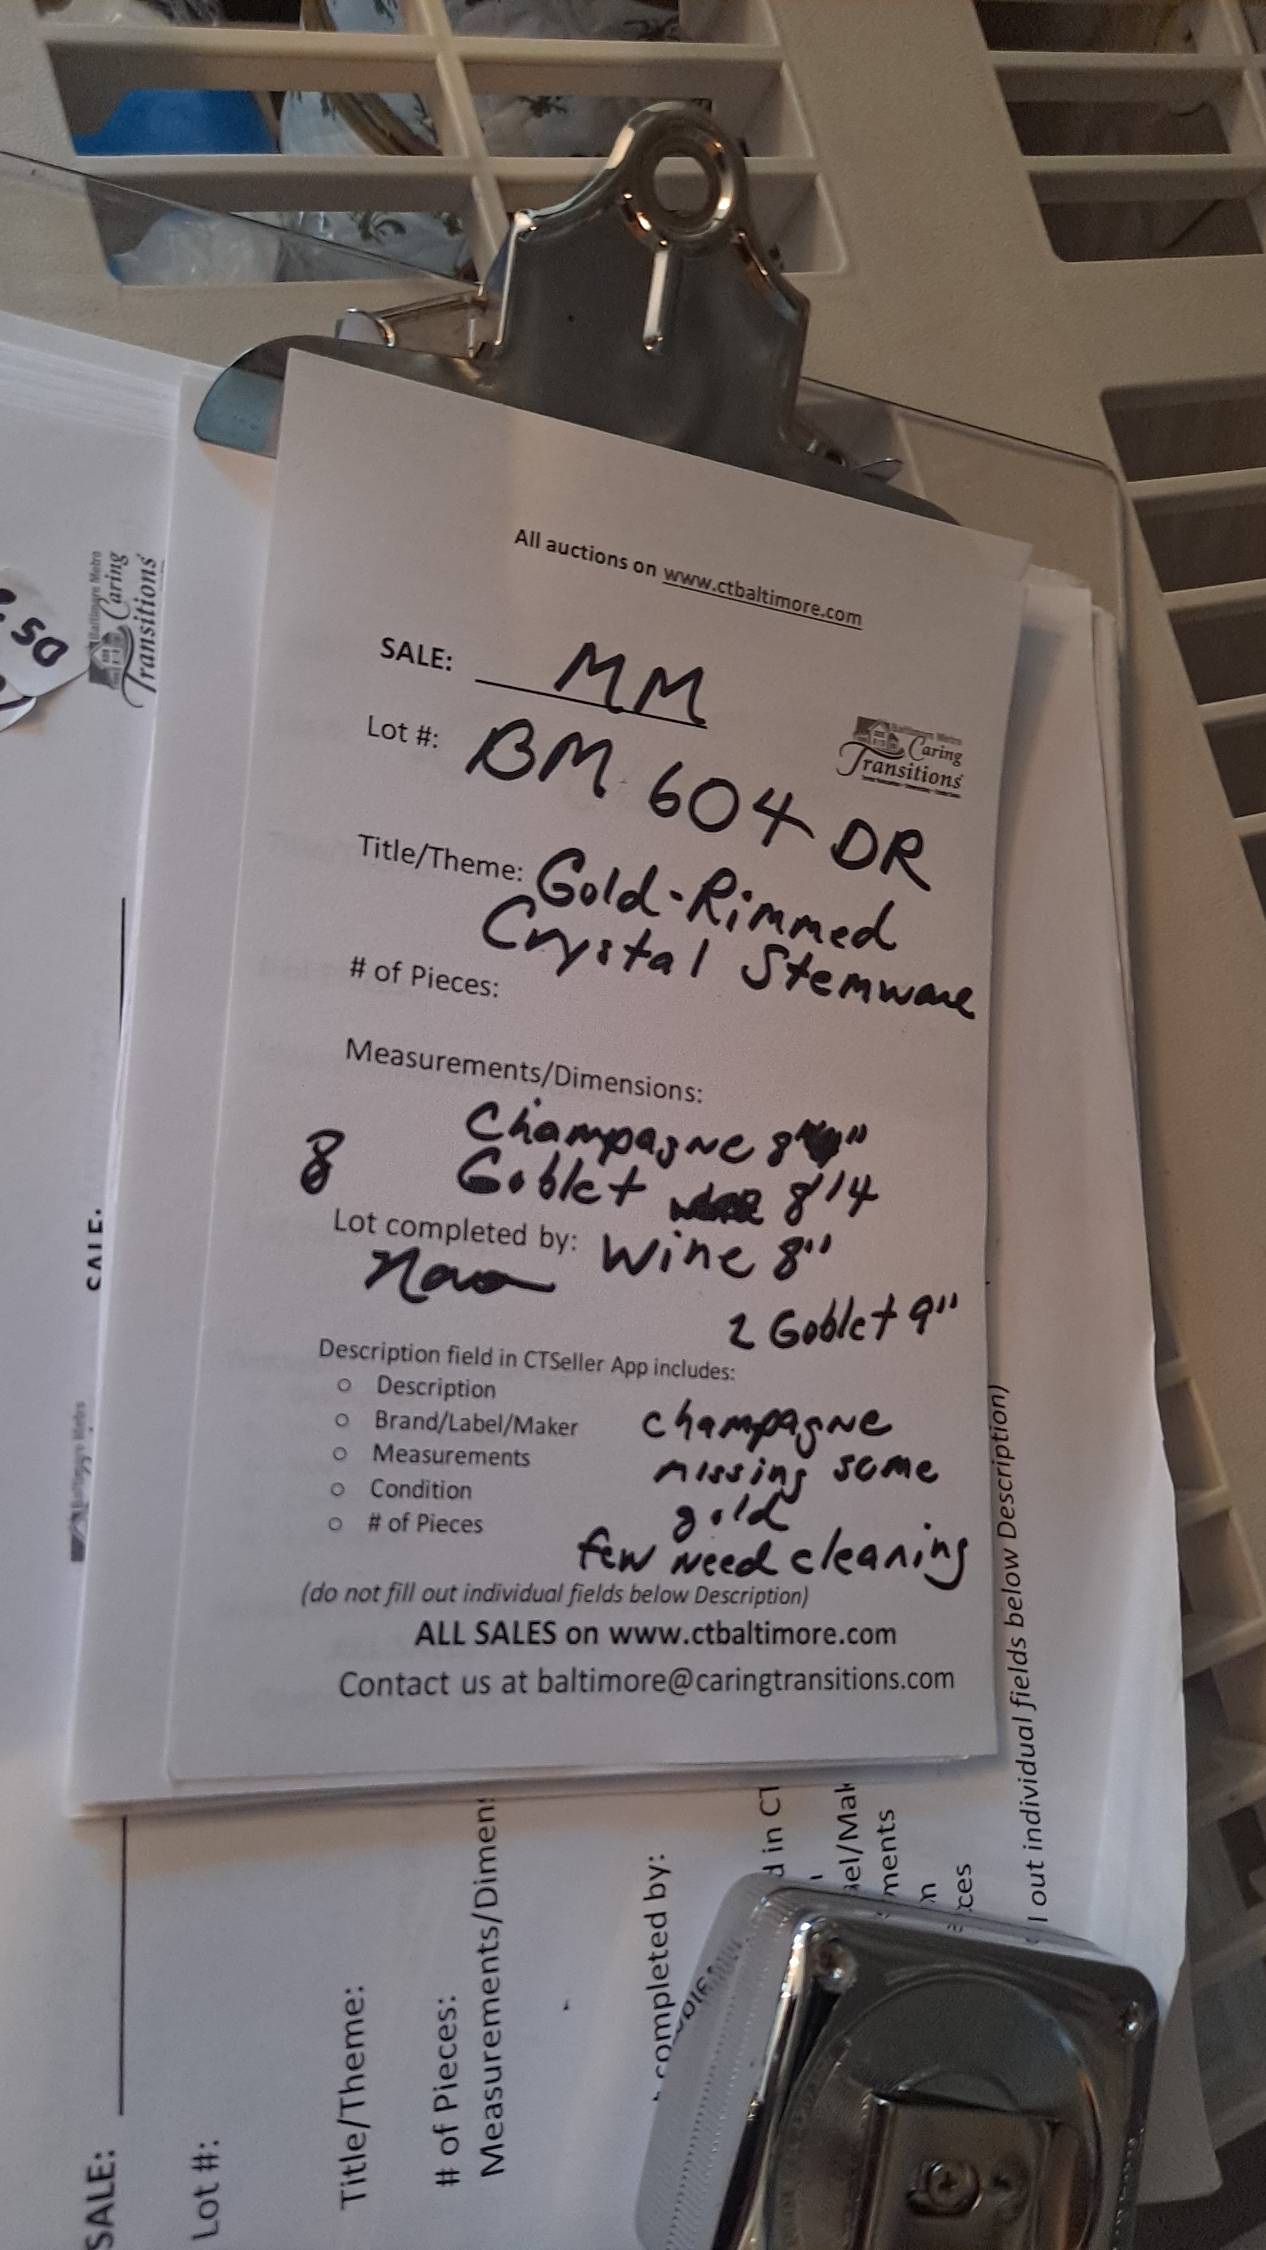 All auctions on www.ctbaltimore.com
SALE: MM
Lot #: BM 604 DR
Baltimore Metro
Caring
Transitions
Title/Theme: Gold-Rimmed
Crystal Stemware
# of Pieces:
Measurements/Dimensions:
Champagne 8"
8 Goblet 8 1/4
Lot completed by: Wine 8"
2 Goblet 9"
Description field in CTSeller App includes:
o Description
o Brand/Label/Maker
o Measurements
o Condition
o # of Pieces
champagne
missing some
gold
few need cleaning
(do not fill out individual fields below Description)
ALL SALES on www.ctbaltimore.com
Contact us at baltimore@caringtransitions.com
Baltimore Metro
Caring
Transitions
SALE:
SALE:
Lot #:
Title/Theme:
# of Pieces:
Measurements/Dimens
completed by:
d in CT
el/Mak
ments
n
ces
l out individual fields below Description)